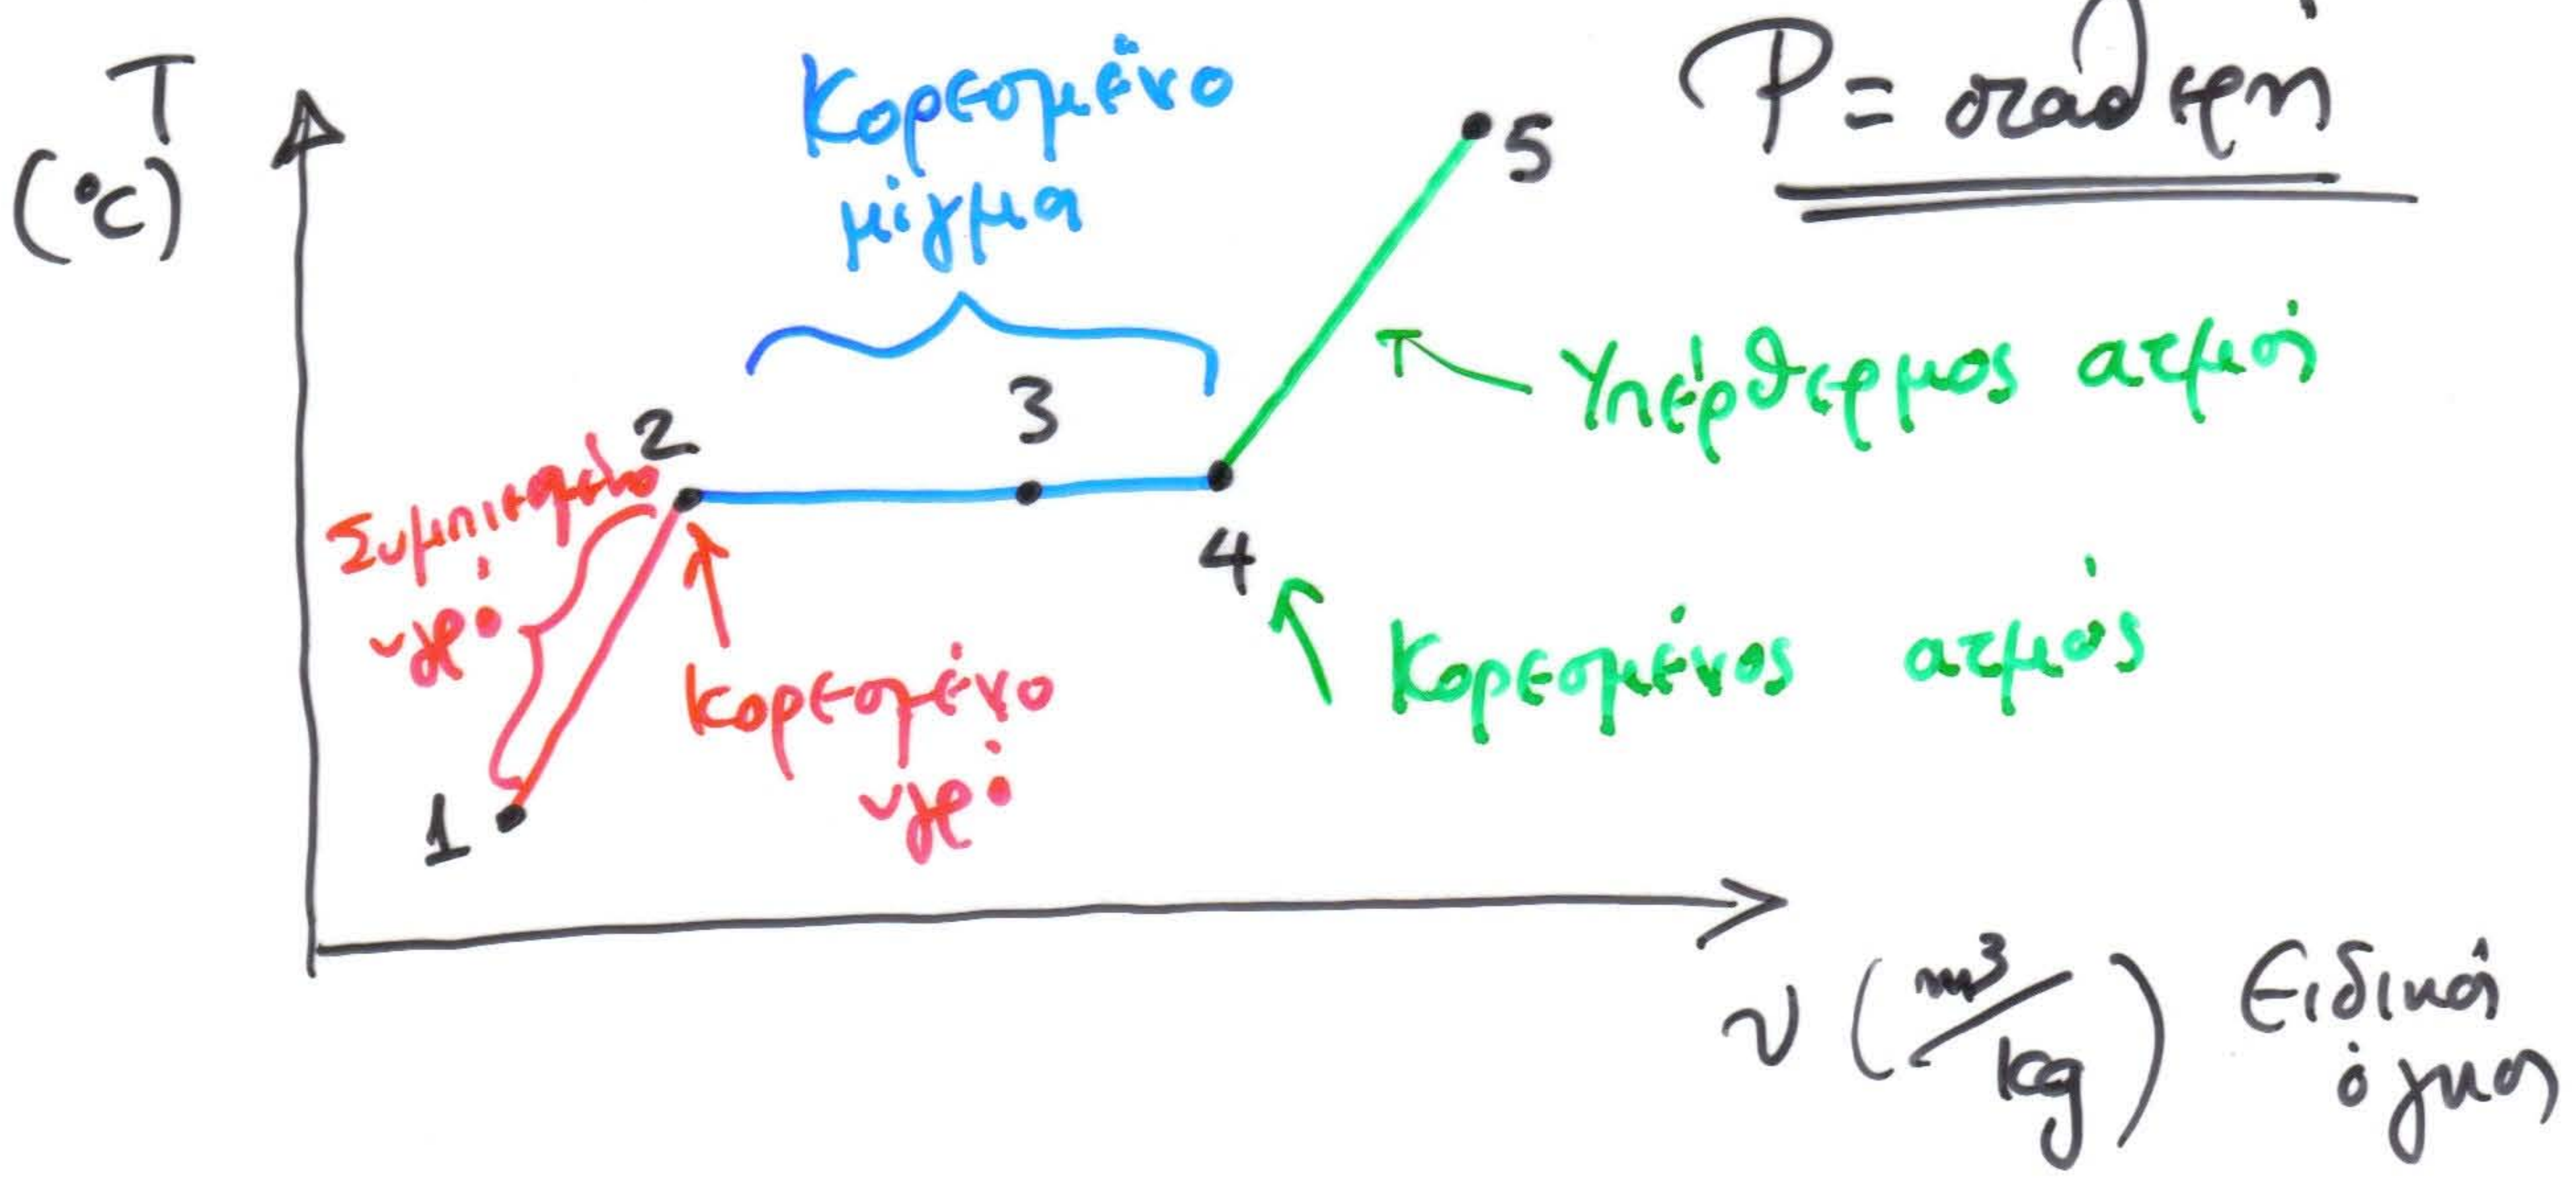 T
(°C)
Κορεσμένο
μίγμα
P = σταθερή
5
Υπέρθερμος ατμός
3
2
Συμπιεσμένο
υγρό
4
Κορεσμένος ατμός
Κορεσμένο
υγρό
1
v (m³/kg) Ειδικός
όγκος